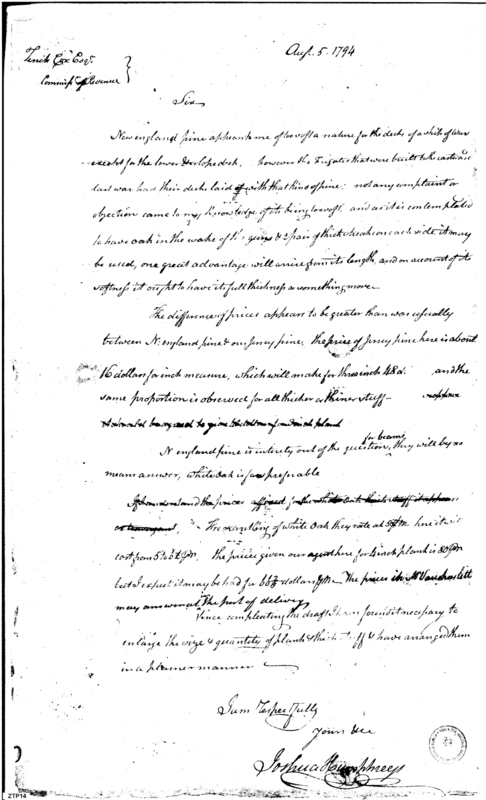 Augt. 5. 1794
Tench Cox Esqr.
Commissr of Revenue
Sir
New england pine appears to me of too soft a nature for the decks of a ship of war
except for the lower & orlop deck, however the Frigates that were built to the eastward
last war had their decks laid with that kind of pine; not any complaint or
objection came to my knowledge of its being too soft, and as it is contemplated
to have oak in the wake of the guns & 2 pair of thick streaks on each side it may
be used, one great advantage will arise from its length, and on account of its
softness it ought to have its full thickness or something more.
The difference of prices appears to be greater than was usually
between N. england pine & our Jersey pine, the price of Jersey pine here is about
16 dollars for inch measure, which will make for three inch 48 d. and the
same proportion is observed for all thicker or thiner stuff
N england pine is entirely out of the question for beams, they will by no
means answer, white oak is far preferable
The of white Oak they rate at here it will
cost from the prices given our here for 4 inch plank is
but I expect it may be had for dollars The prices in Mr
may answer at the port of delivery
Since compleating the draft I have found it necessary to
enlarge the size & quantity of plank & thick stuff & have arranged them
in a plainer manner
I am respectfully
Yours &c
Joshua Humphreys
ZTP14